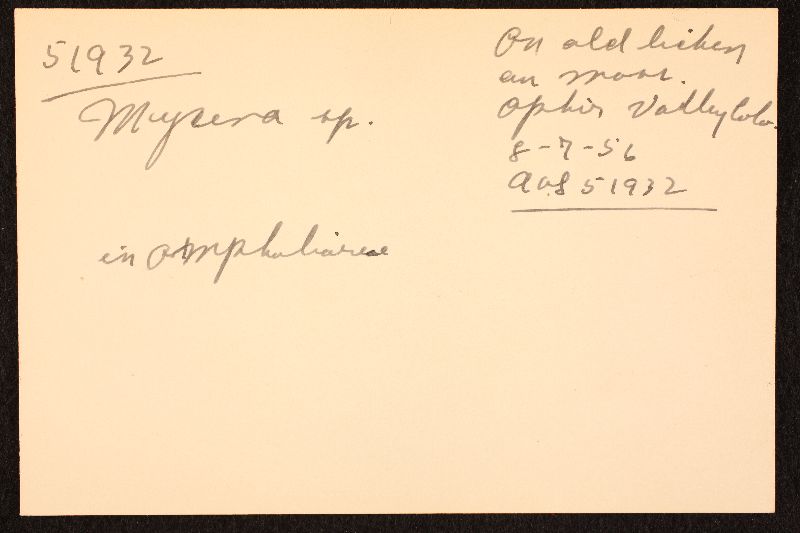 51932
Mycena sp.
in Omphaliariae
On old lichen
on moor.
Ophir Valley Colo.
8-7-56
AHS 51932